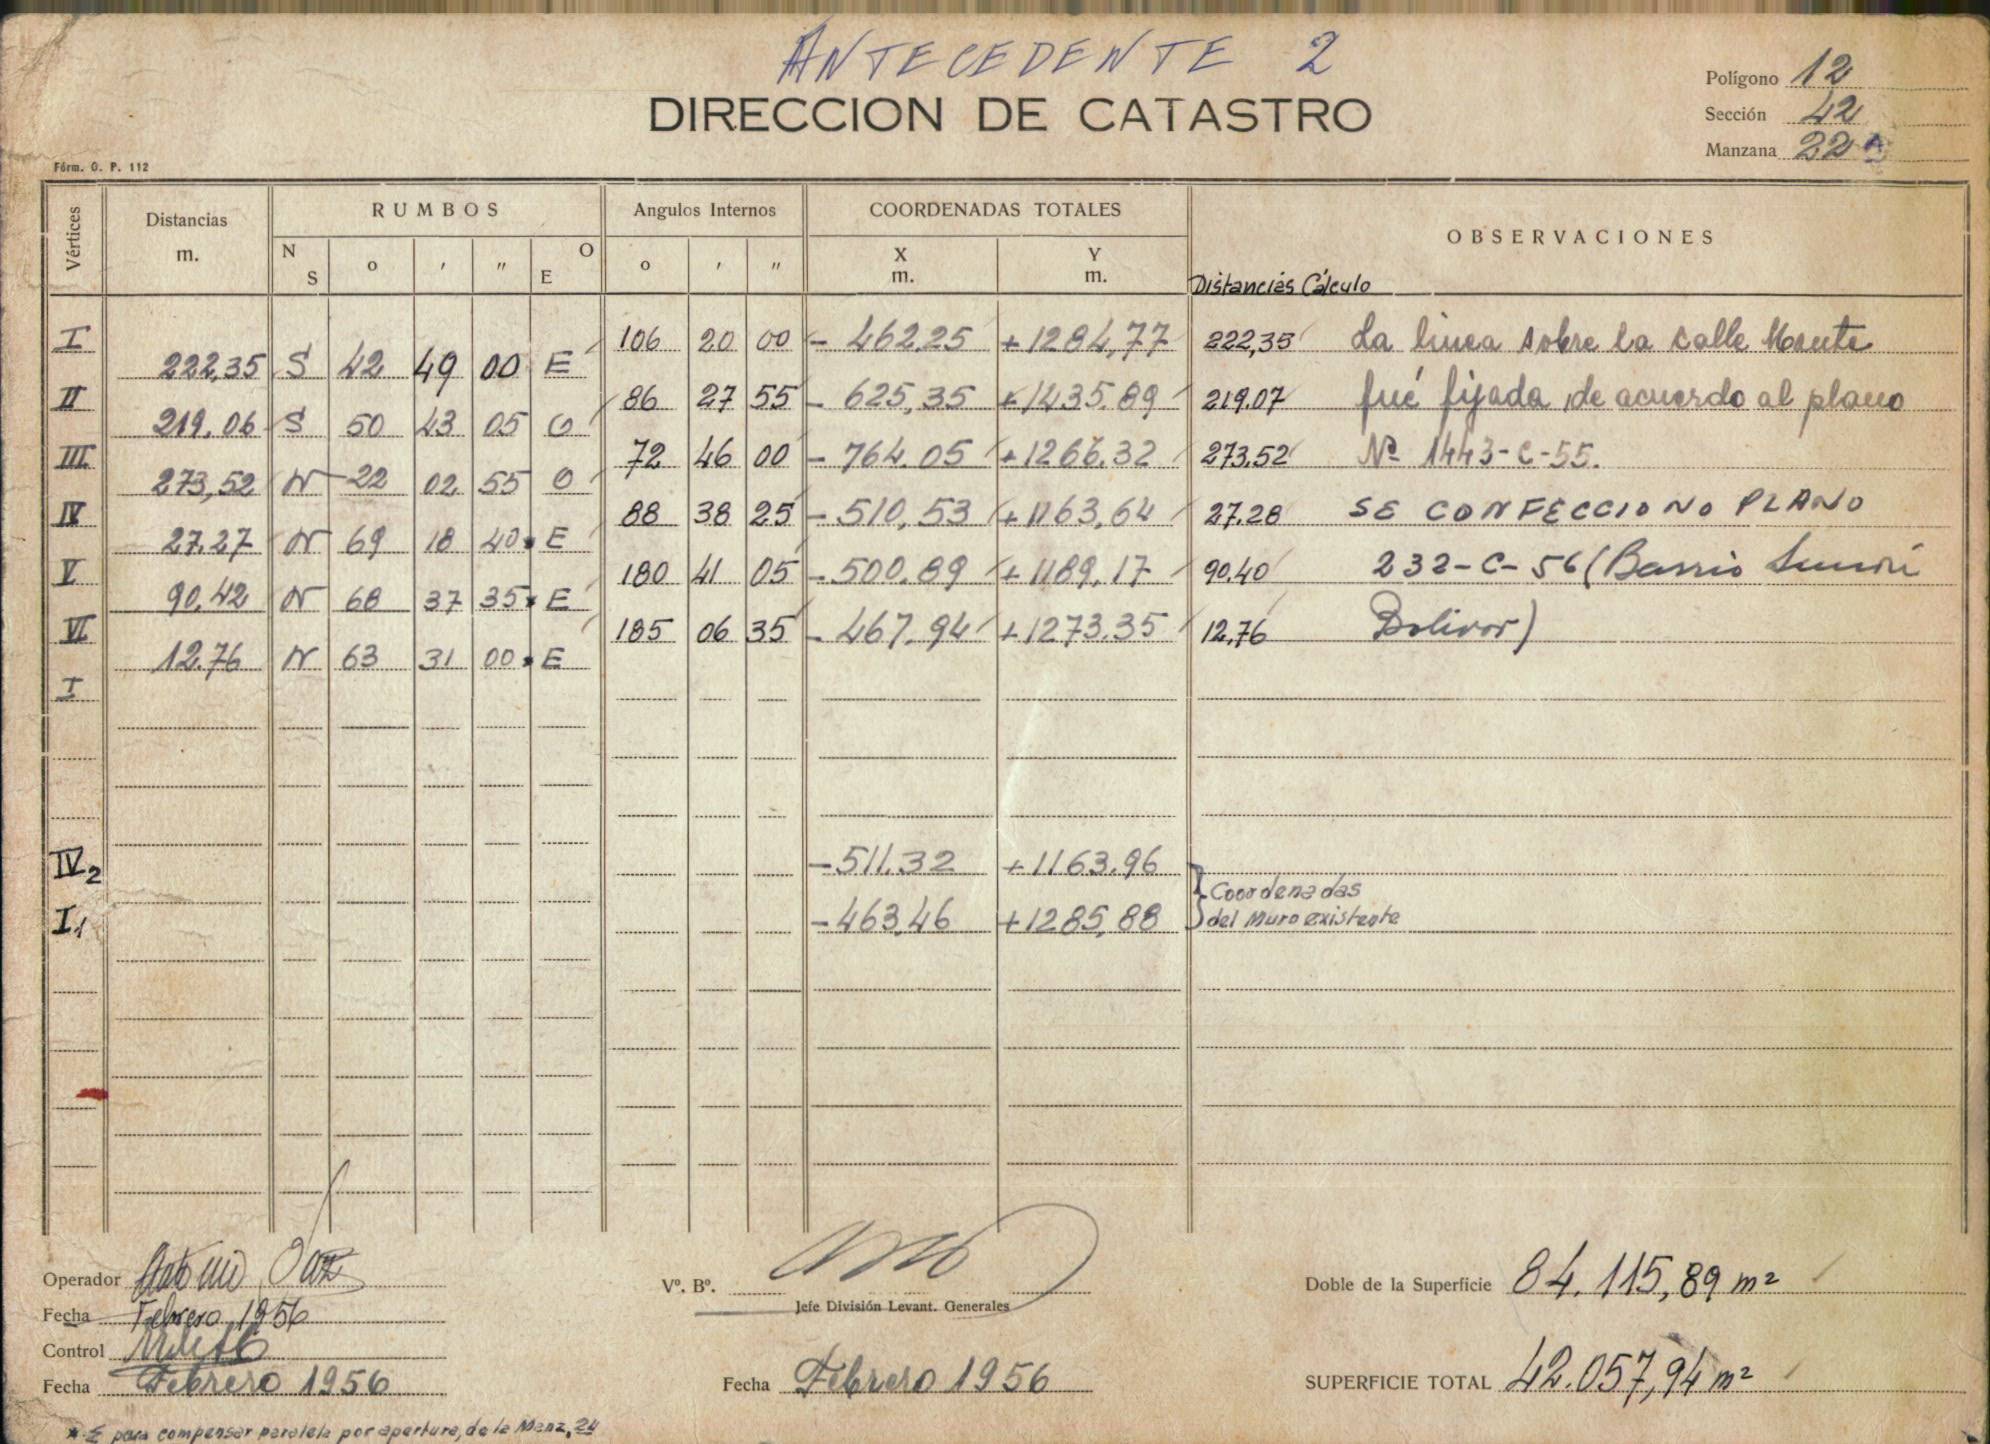 ANTECEDENTE 2
DIRECCION DE CATASTRO
Polígono 12
Sección 42
Manzana 22
Fórm. G. P. 112
Vértices Distancias m. RUMBOS Angulos Internos COORDENADAS TOTALES OBSERVACIONES
N S o ' " O E o ' " X m. Y m. Distancias Cálculo
I 106 20 00 - 462,25 +1284,77 222,35 La linea sobre la calle Monte
222,35 S 42 49 00 E
II 86 27 55 - 625,35 +1435.89 219.07 fué fijada, de acuerdo al plano
219.06 S 50 43 05 O
III 72 46 00 - 764.05 +1266.32 273.52 Nº 1443-C-55.
273,52 N 22 02 55 O
IV 88 38 25 - 510,53 +1163,64 27.28 SE CONFECCIONO PLANO
27.27 N 69 18 40* E
V 180 41 05 - 500.89 +1189.17 90.40 232-C-56 (Barrio
90.42 N 68 37 35* E
VI 185 06 35 - 467.94 +1273.35 12,76 Bolivar)
12.76 N 63 31 00* E
I
IV2 -511.32 +1163.96
Coordenadas
I1 -463,46 +1285,88 del Muro existente
Operador Antonio
Fecha Febrero 1956
Control
Fecha Febrero 1956
Vº. Bº.
Jefe División Levant. Generales
Fecha Febrero 1956
Doble de la Superficie 84.115,89 m²
SUPERFICIE TOTAL 42.057,94 m²
* E para compensar paralela por apertura, de la Manz. 24